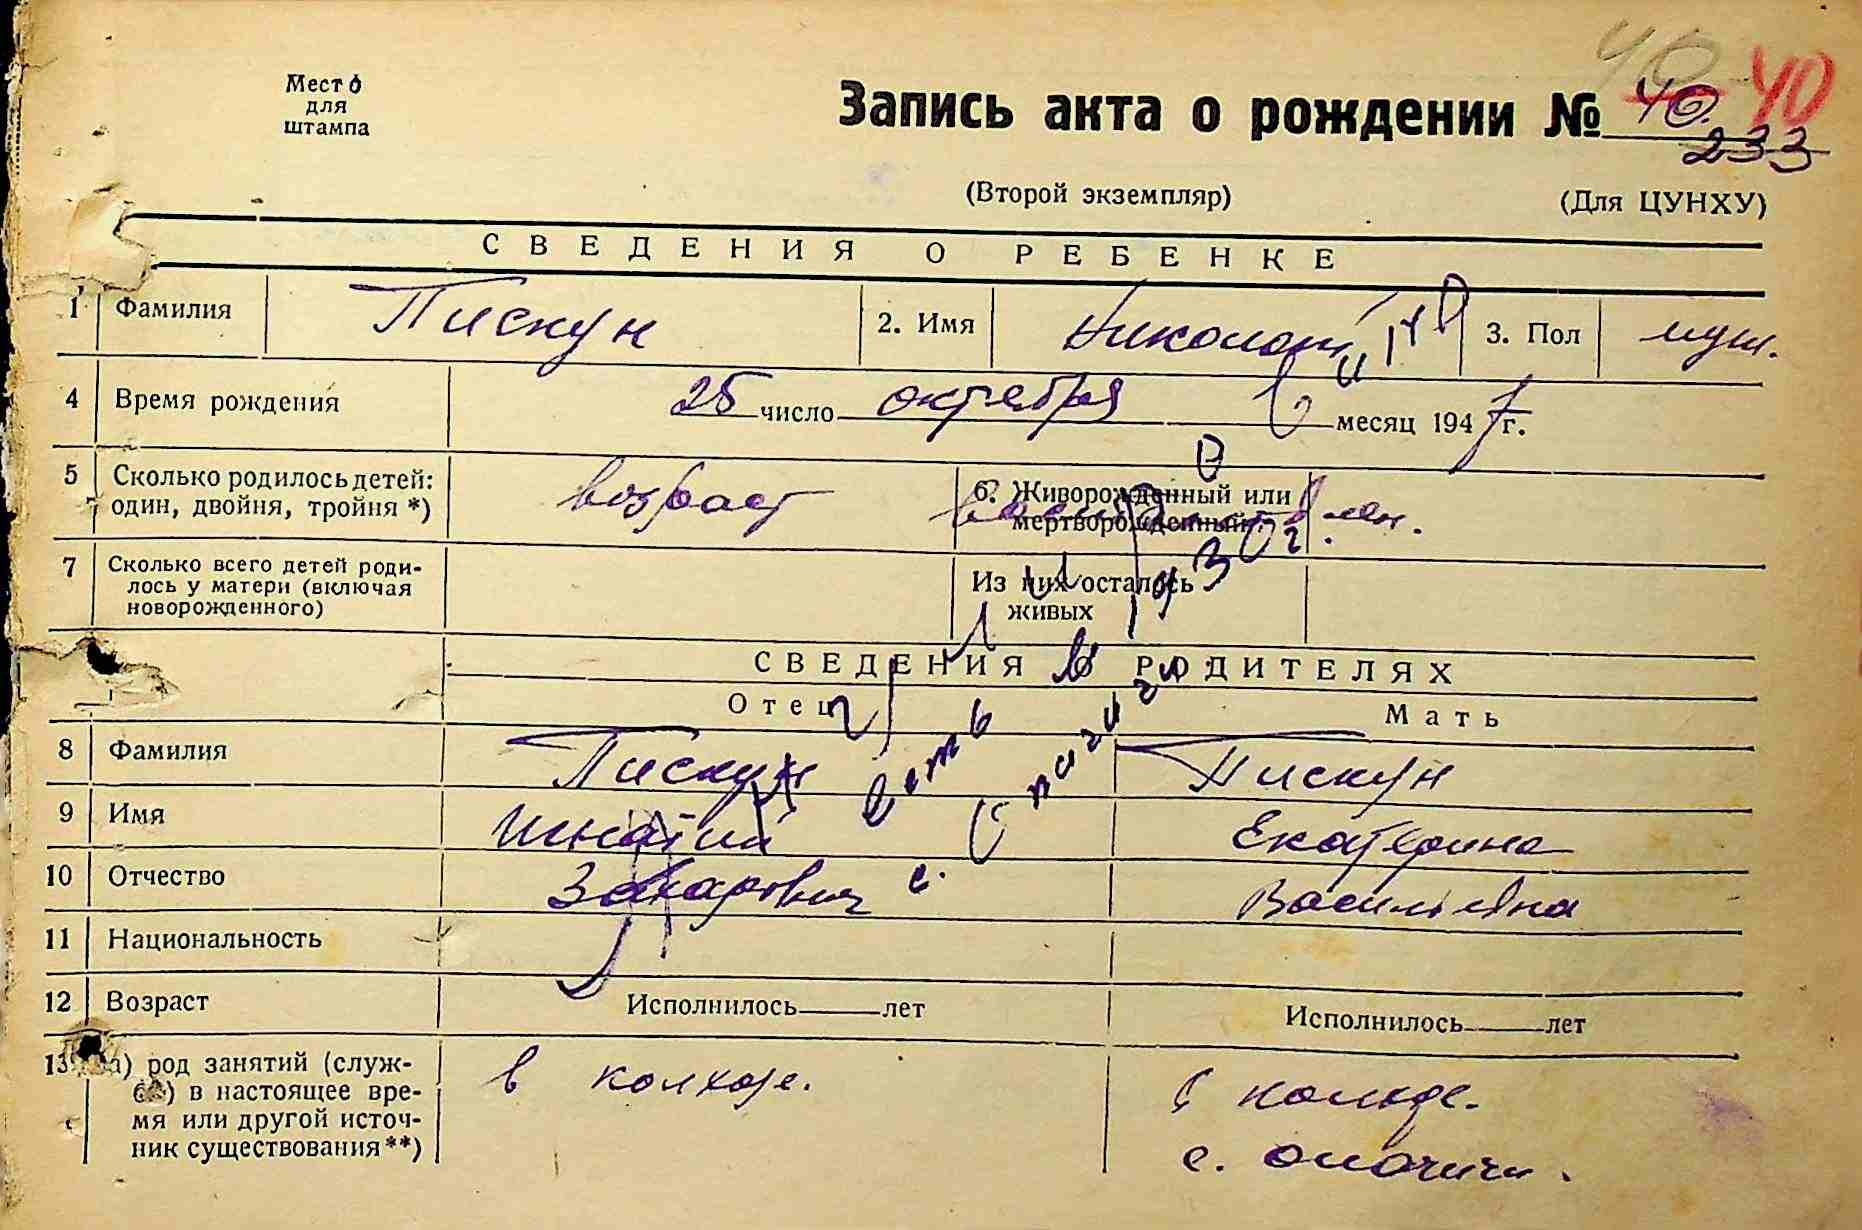 Место для штампа
40 40
Запись акта о рождении № 40
233
(Второй экземпляр) (Для ЦУНХУ)
СВЕДЕНИЯ О РЕБЕНКЕ
1 Фамилия Пискун 2. Имя Николай 3. Пол муж.
4 Время рождения 25 число октября месяц 1947 г.
5 Сколько родилось детей: один, двойня, тройня *) возраст 6. Живорожденный или мертворожденный
1930 г.
7 Сколько всего детей родилось у матери (включая новорожденного) Из них осталось живых
СВЕДЕНИЯ О РОДИТЕЛЯХ
Отец Мать
8 Фамилия Пискун Пискун
9 Имя Игнатий Екатерина
10 Отчество Захарович Васильевна
11 Национальность
12 Возраст Исполнилось лет Исполнилось лет
13 а) род занятий (служба) в настоящее время или другой источник существования **) в колхозе. в колхозе.
с.